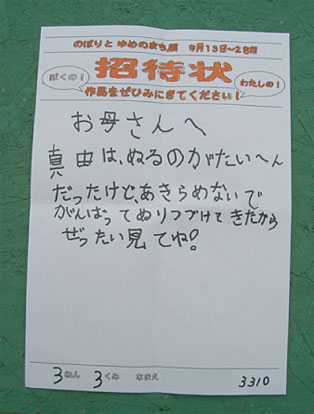 のぼりと ゆめのまち展 9月13日～28日
ぼくの！
招待状
わたしの！
作品をぜひみにきてください！
お母さんへ
真由は、ぬるのがたいへん
だったけど、あきらめないで
がんばってぬりつづけてきたから
ぜったい見てね!
3ねん 3くみ なまえ 3310